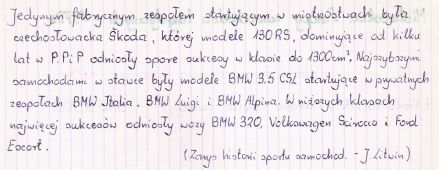 Jedynym fabrycznym zespołem startującym w mistrzostwach była
czechosłowacka Škoda, której modele 130RS, dominujące od kilku
lat w P.P.i P odniosły spore sukcesy w klasie do 1300cm³. Najszybszymi
samochodami w stawce były modele BMW 3.5 CSL startujące w prywatnych
zespołach BMW Italia, BMW Luigi i BMW Alpina. W niższych klasach
najwięcej sukcesów odniosły wozy BMW 320, Volkswagen Scirocco i Ford
Escort.
(Zarys historii sportu samochod. - J. Litwin)